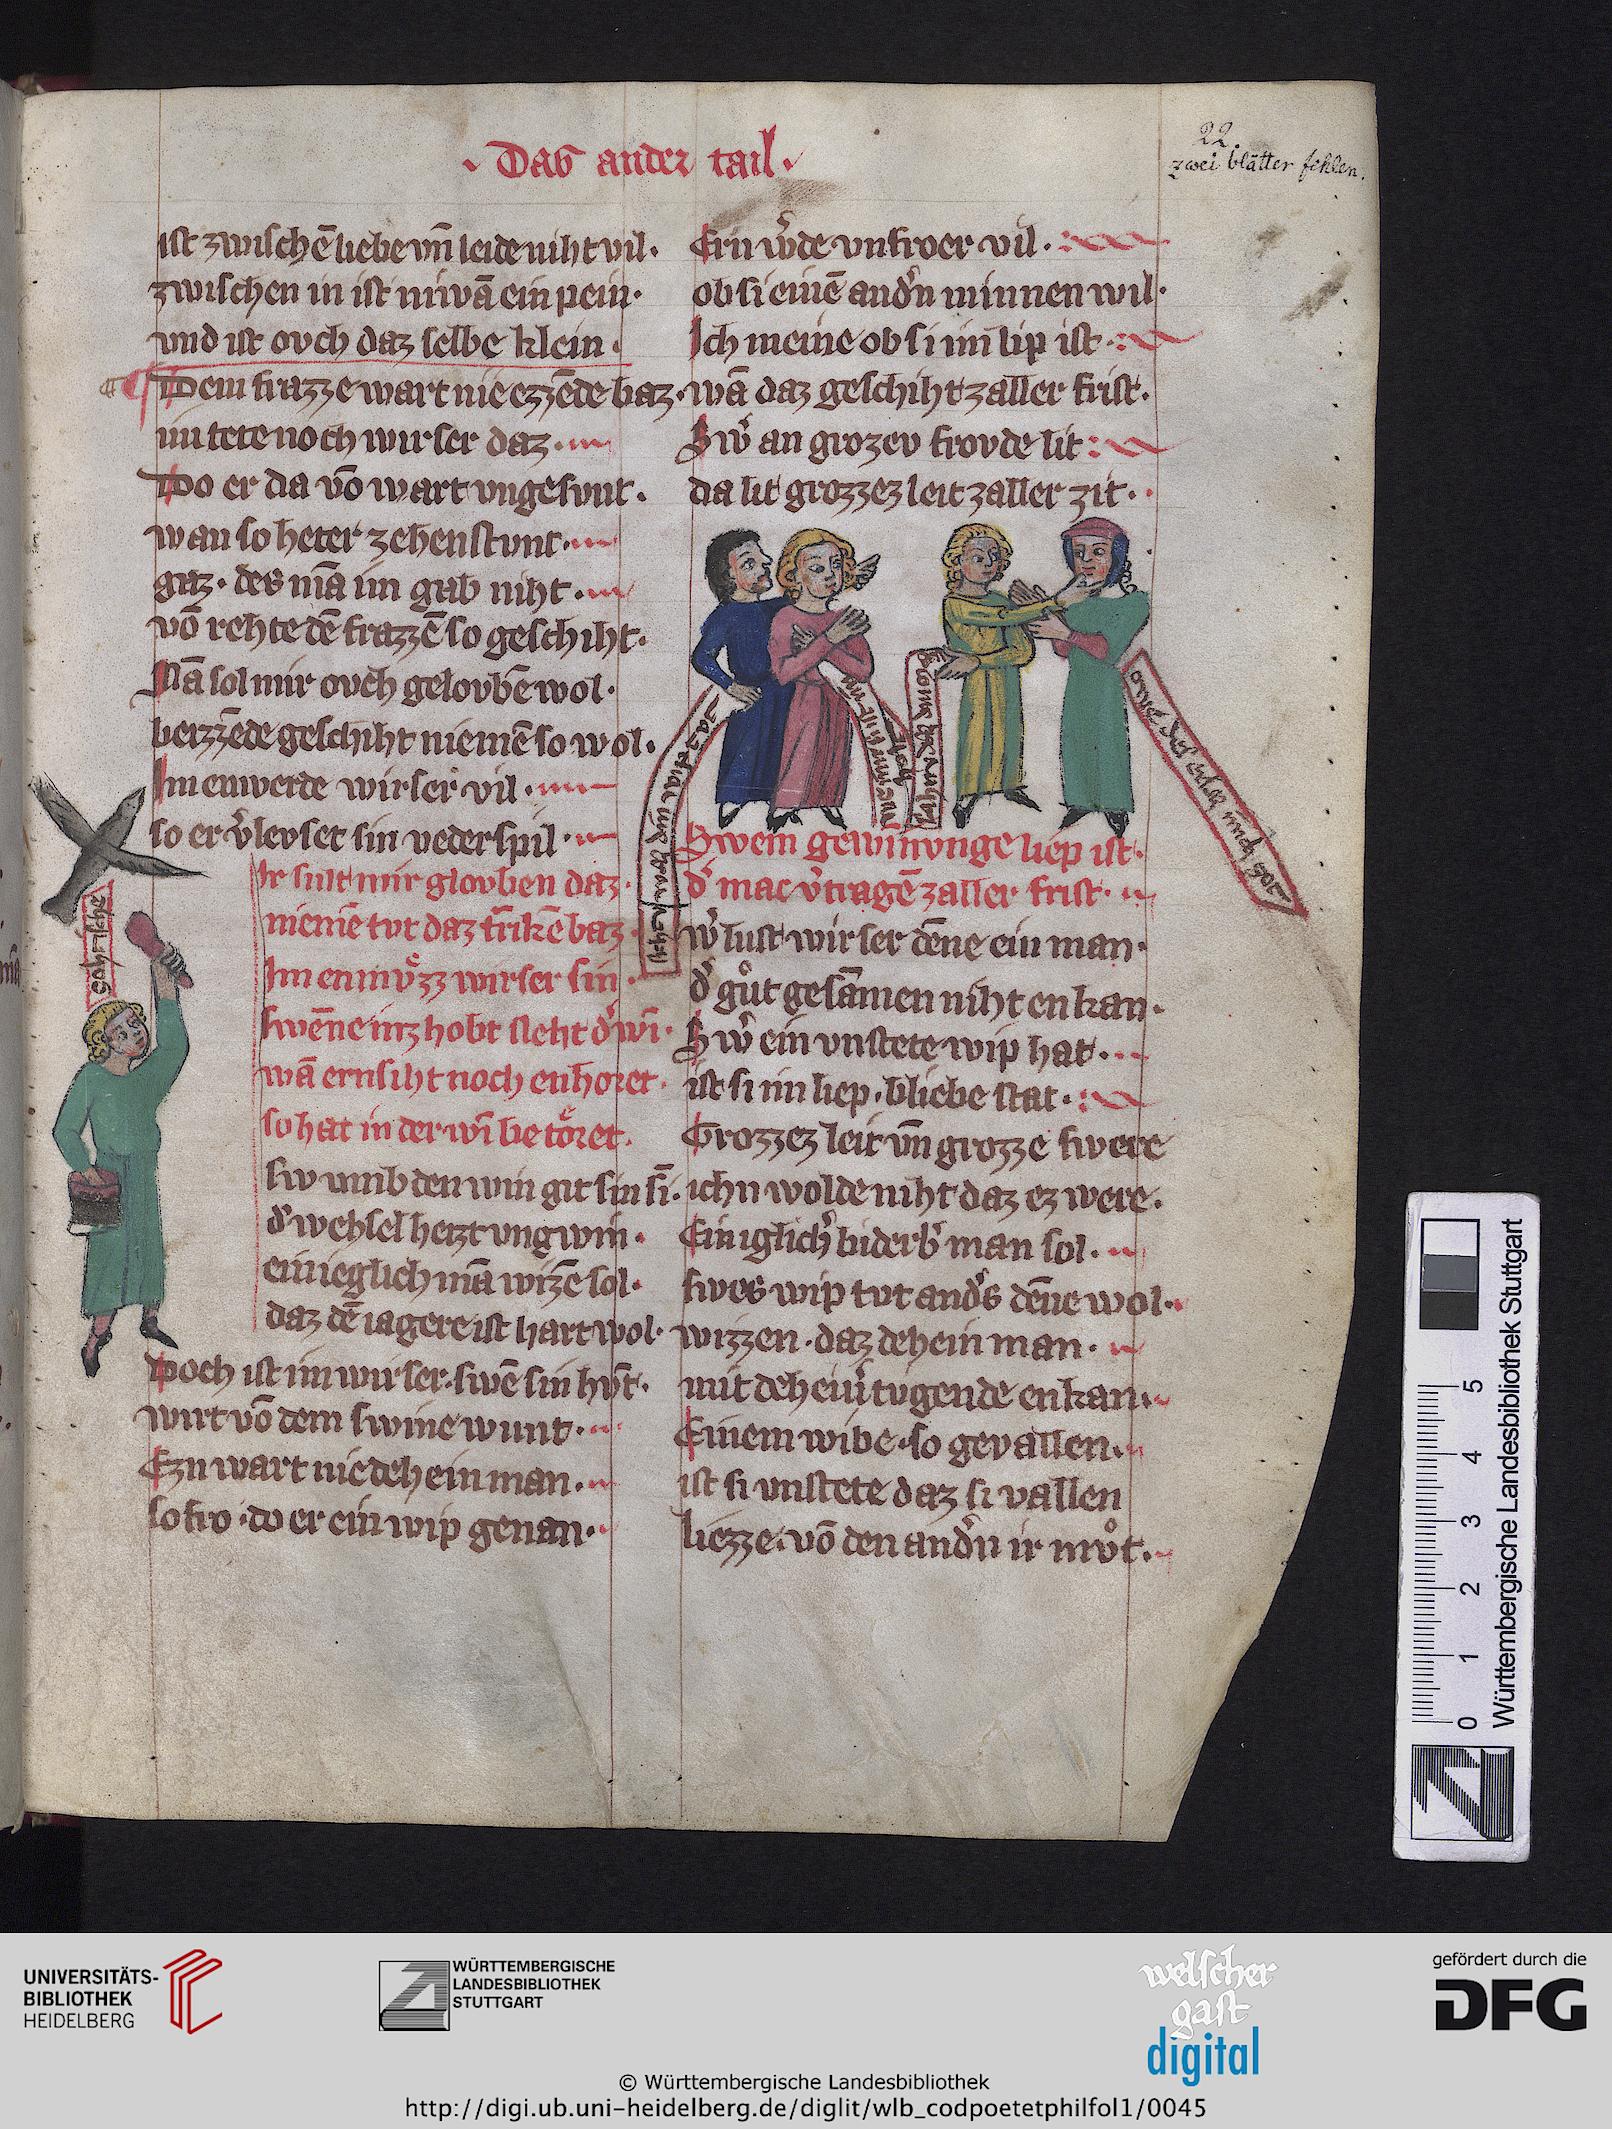 · Das ander tail ·
22.
zwei blätter fehlen.
ist zwischē liebe vn̄ leide niht vil·
zwischen in ist niwā ein pein·
vnd ist ovch daz selbe klein·
Dem frazze wart nie ezzēde baz·
im tete noch wirser daz·
Do er da vō wart vngesvnt·
wan so heter zehenstvnt·
gaz· des mā im gab niht·
vō rehte dē frazzē so geschiht·
Mā sol mir ovch gelovbē wol·
beizzēde geschiht niemē so wol·
Im enwerde wirser vil·
so er v̓levset sin vederspil·
Ir sult mir glovben daz·
niemē tvt daz trīkē baz·
Im enmvͦzz wirser sin·
swēne inz hobt sleht d̓ wī·
wā ern siht noch enhoret·
so hat in der wī betoͤret·
sw umb den win git sin sī·
d̓ wehsel heizt vngwin·
ein ieglich mā wizē sol·
daz dē iagere ist hart wol·
Doch ist im wirser· swē sin hvͦt·
wirt vō dem swine wunt·
Ezn wart nie dehein man·
so fro· do er ein wip genan·
Ern w̓de vnfroer vil·
ob si einē and̓n minnen wil·
Ich meine ob si im lip ist·
wā daz geschiht zaller frist·
Sw̓ an grozev frovde lit
da lit grozzez leit zaller zit·
Swem gewinvnge liep ist·
d̓ mac v̓tragē zaller frist·
w̓lust wirser dēne ein man·
d̓ gůt gesāmen niht enkan·
Sw̓ ein vnstete wip hat·
ist si im liep· bliebe stat·
Grozzez leit vn̄ grozze swere
ichn wolde niht daz ez were·
Ein iglich̓ biderb̓ man sol·
swes wip tvt and̓s dēne wol·
wizzen· daz dehein man·
mit deheiner tvgende enkan·
Einem wibe· so gevallen·
ist si vnstete daz si vallen
liezze· vō den and̓n ir mvͦt·
0 1 2 3 4 5
Württembergische Landesbibliothek Stuttgart
UNIVERSITÄTS-
BIBLIOTHEK
HEIDELBERG
WÜRTTEMBERGISCHE
LANDESBIBLIOTHEK
STUTTGART
welscher
gast
digital
gefördert durch die
DFG
© Württembergische Landesbibliothek
http://digi.ub.uni-heidelberg.de/diglit/wlb_codpoetetphilfol1/0045